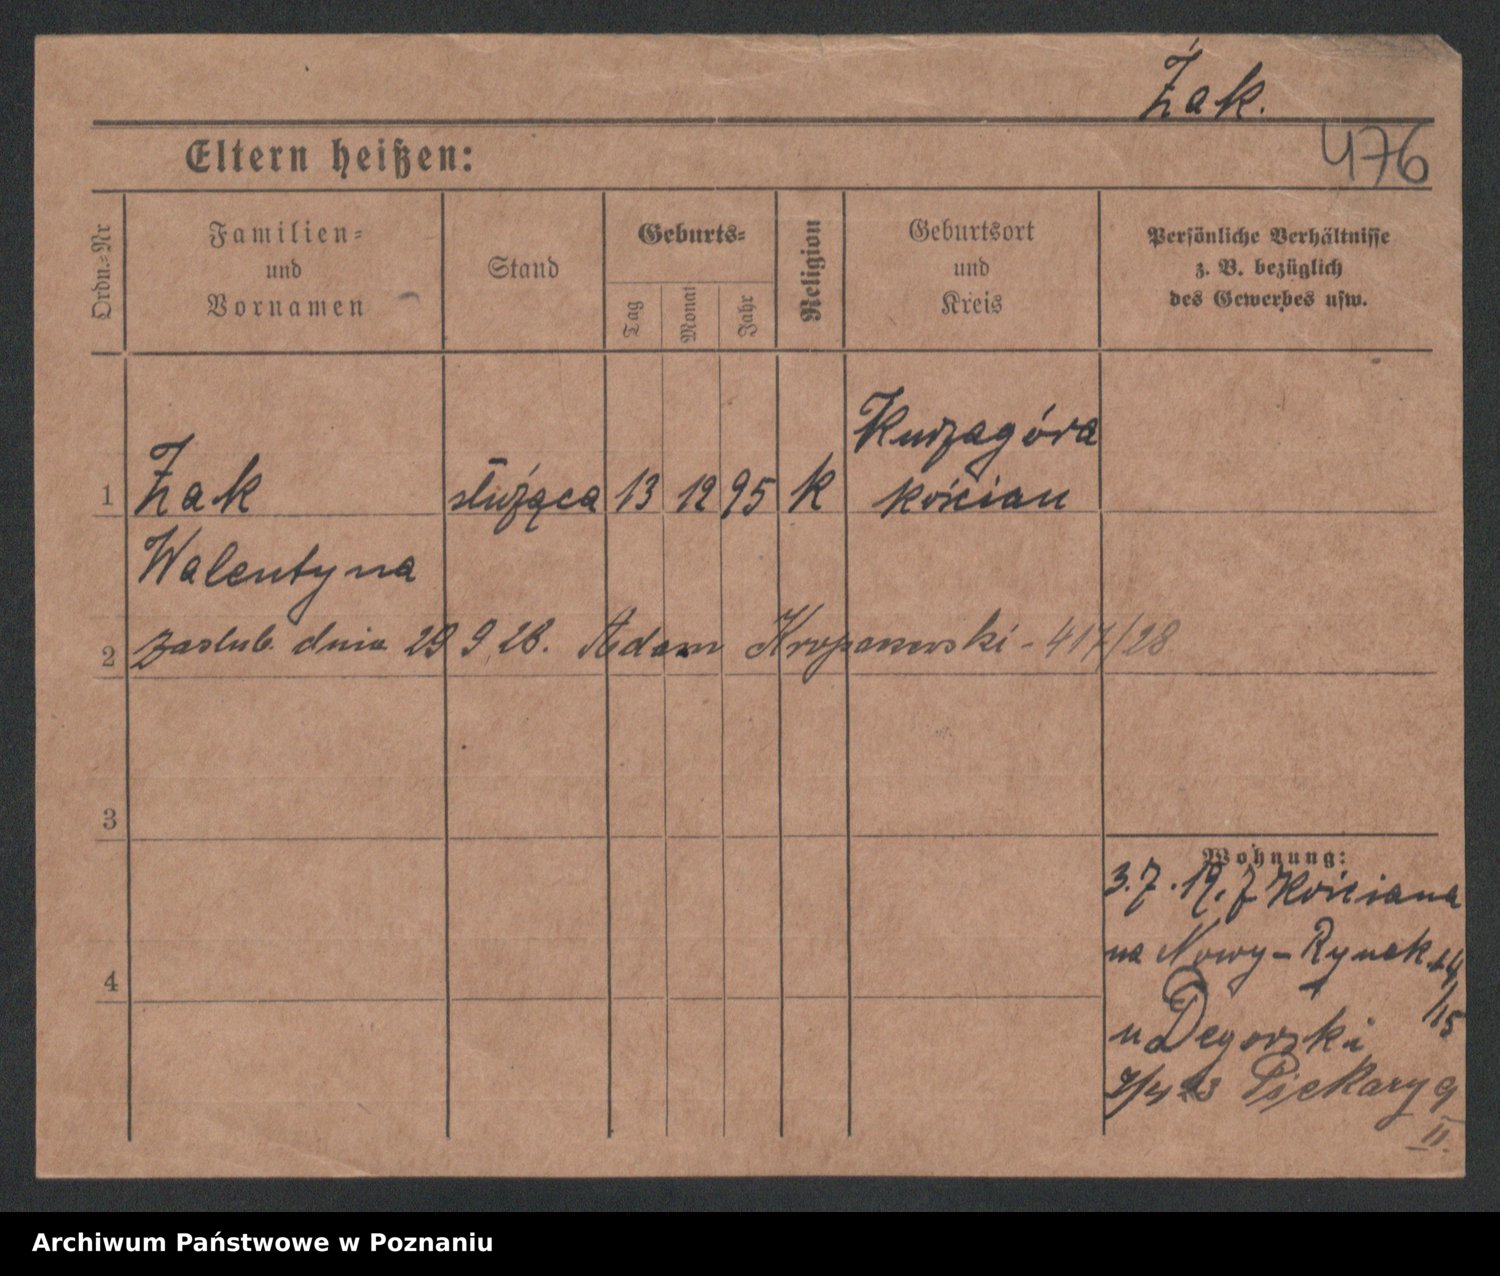 Żak.
476
Eltern heißen:
Ordn.-Nr
Familien-
und
Vornamen
Stand
Geburts-
Tag
Monat
Jahr
Religion
Geburtsort
und
Kreis
Persönliche Verhältnisse
z. B. bezüglich
des Gewerbes usw.
1
Żak
służąca
13
12
95
k
Kurzagóra
Kościan
Walentyna
2
zaslub. dnia 29 9 28. Adam - 417/28
3
Wohnung:
3.7.19. z Kościana
na Nowy-Rynek 14
/15
u Degorski
4
Piekary 9
II.
Archiwum Państwowe w Poznaniu